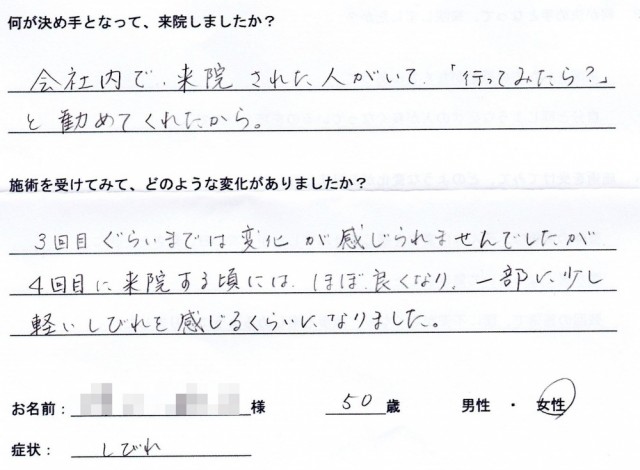 何が決め手となって、来院しましたか？
会社内で、来院された人がいて、「行ってみたら？」
と勧めてくれたから。
施術を受けてみて、どのような変化がありましたか？
3回目ぐらいまでは変化が感じられませんでしたが
4回目に来院する頃には、ほぼ良くなり、一部に少し
軽いしびれを感じるくらいになりました。
お名前： 様 50 歳 男性 ・ 女性
症状： しびれ